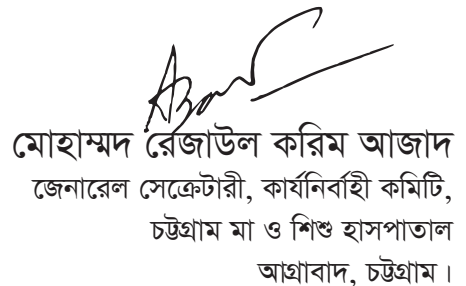 মোহাম্মদ রেজাউল করিম আজাদ
জেনারেল সেক্রেটারী, কার্যনির্বাহী কমিটি,
চট্টগ্রাম মা ও শিশু হাসপাতাল
আগ্রাবাদ, চট্টগ্রাম।